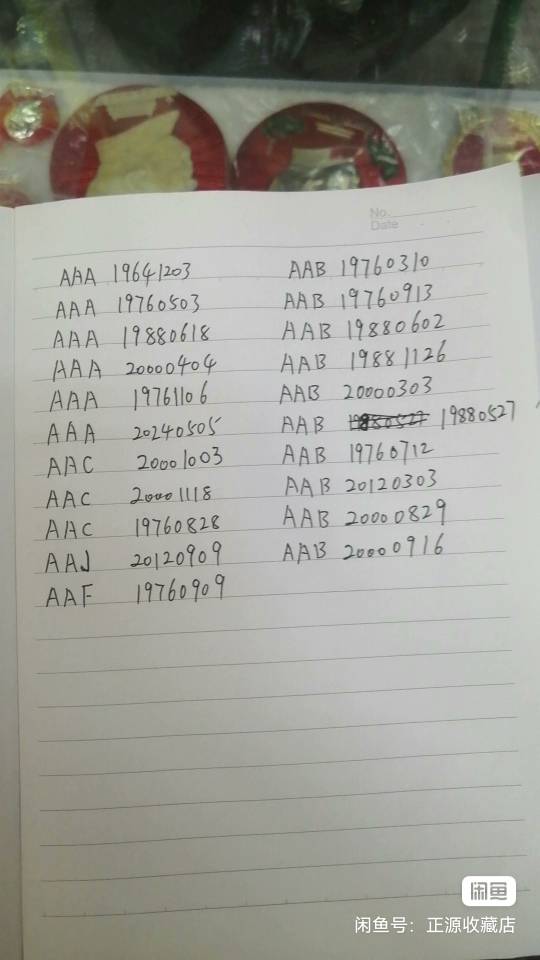 No.
Date
AAA 19641203
AAA 19760503
AAA 19880618
AAA 20000404
AAA 19761106
AAA 20240505
AAC 20001003
AAC 20001118
AAC 19760828
AAJ 20120909
AAF 19760909
AAB 19760310
AAB 19760913
AAB 19880602
AAB 19881126
AAB 20000303
AAB 19880527 19880527
AAB 19760712
AAB 20120303
AAB 20000829
AAB 20000916
闲鱼
闲鱼号：正源收藏店